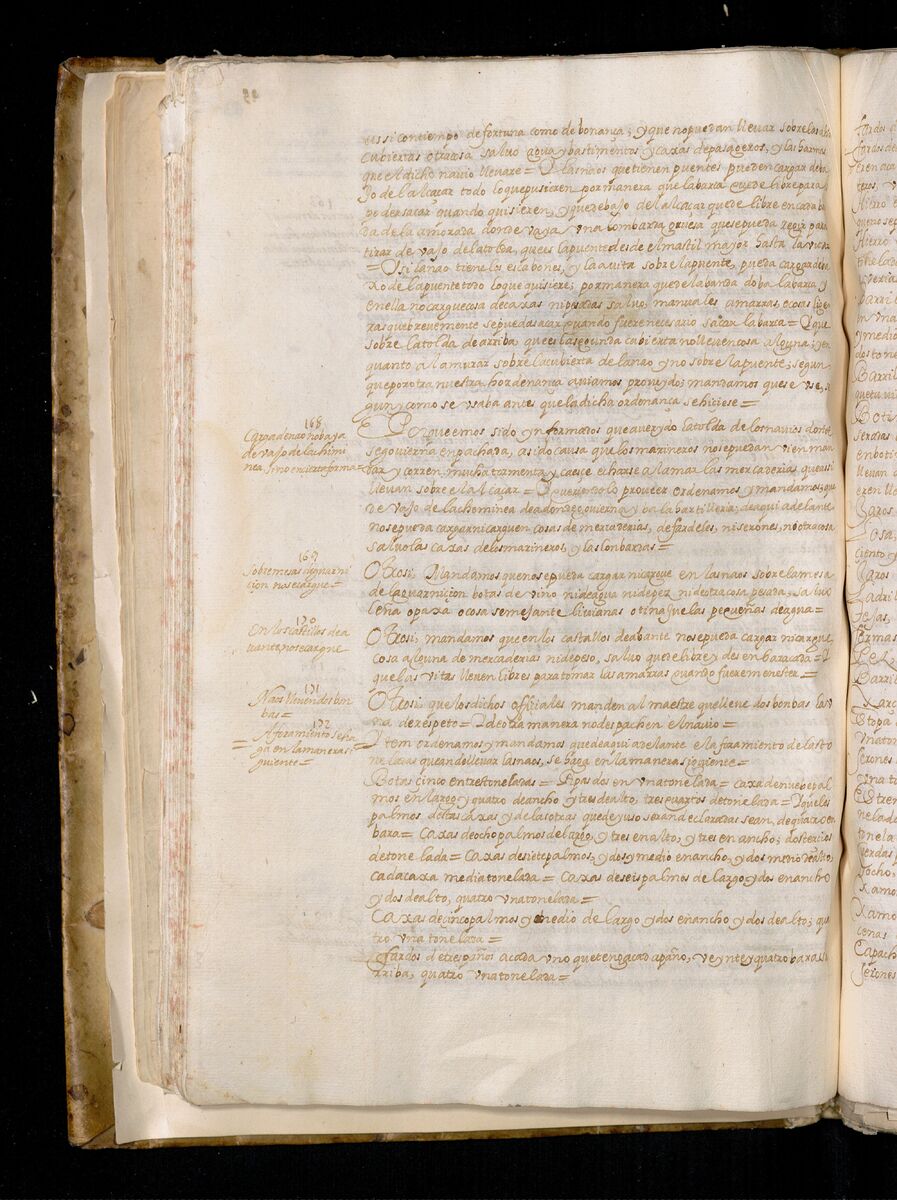 assi con tiempo de fortuna como de bonança; y que no puedan llevar sobre las
cubiertas otra cosa salvo agua y bastimentos y caxas de pasageros, y las harmas
que el dicho navio llevare = Y las naos que tienen puentes puedan cargar deba
jo del alcaçar todo lo que pusieren por manera que la barca quede libre para
poder sacar quando quisieren, y que debajo del alcaçar quede libre en cada ba
da de la amorada donde vaya una lombarda gruesa que se pueda regir para
tirar de vajo de la tolda, que es la puente desde el mastil major hasta la
= Y si la nao tiene los escabones, y la avita sobre la puente, pueda cargar deba
xo de la puente todo lo que quisiere; por manera que de la banda do ba la barca y
en ella no cargue cosa de caxas ni pesadas salvo, manuales amarras, e cosas lige
ras que brevemente se puedan sacar quando fuere necesario sacar la barca = Y que
sobre la tolda de arriba, que es la segunda cubierta no lleven cosa alguna; y en
quanto al amurar sobre la cubierta de la nao y no sobre la puente; segun
que por otra nuestra hordenança aviamos proveydo; mandamos que se use, se
gun y como se usaba antes que la dicha ordenança se hiçiese =
168
Carga denxo no baja
de vajo de la chimi
nea, sino en cierta forma =
Porque emos sido ynformados que aver ydo la tolda de los navios donde
se govierna enpachada, a sido causa que los marineros no se puedan vien man
dar, y corren mucha tormenta y caesçe echarse a la mar las mercaderias que assi
llevan sobre el alcaçar = Y queriendolo proveer ordenamos y mandamos, que
de vajo de la chominea de a donde govierna y ba la bartilleria; de aqui adelante
no se pueda cargar ni carguen cosas de mercaderias, de fardeles, ni serones, ni otra cosa
salvo las caxas de los marineros, y las lonbardas =
169
Sobre mesas de guarni
çion no se cargue =
Otrosi: Mandamos que no se pueda cargar ni cargue en las naos sobre la mesa
de la guarniçion botas de vino ni de agua ni de pez ni de otra cosa pesada, salvo
leña o paxa o cosa semejante livianas o tinaguelas pequeñas de agua =
170
En los castillos de a
vante no se cargue
Otrosi; mandamos que en los castallos de abante no se pueda cargar ni cargue
cosa alguna de mercaderias ni de peso, salvo quede libre y desenbaraçada = Y
que las vitas lleven libres para tomar las amarras quando fuere menester =
171
Naos lleven dos bon
bas =
Otrosi; que los dichos offiçiales manden al maestre que lleve dos bombas la
na de respeto = Y de otra manera no despachen el navio =
172
Aforamiento se ha
ga en la manera si
guiente =
Y tem ordenamos y mandamos que de aqui adelante el aforamiento de las to
neladas que an de llevar las naos, se haga en la manera siguiente =
Botas çinco en tres toneladas = Pipas dos en una tonelada = caxa de nueve pal
mos en largo y quatro de ancho y tres de alto, tres cuartos de tonelada = Y que los
palmos destas caxas y de las otras que de yuso seran declaradas sean, de quatro en
bara = Caxas de ocho palmos de largo, y tres en alto, y tres en ancho; dos terçios
de tonelada = Caxas de siete palmos, y dos y medio en ancho, y dos y medio en alto,
cada caxa media tonelada = Caxas de seis palmos de largo y dos en ancho
y dos de alto, quatro una tonelada =
Caxas de cinco palmos y medio de largo y dos en ancho y dos de alto; qua
tro una tonelada =
Fardos de tres paños a cada uno que tenga cada paño, veynte y quatro baras a
rriba, quatro una tonelada =